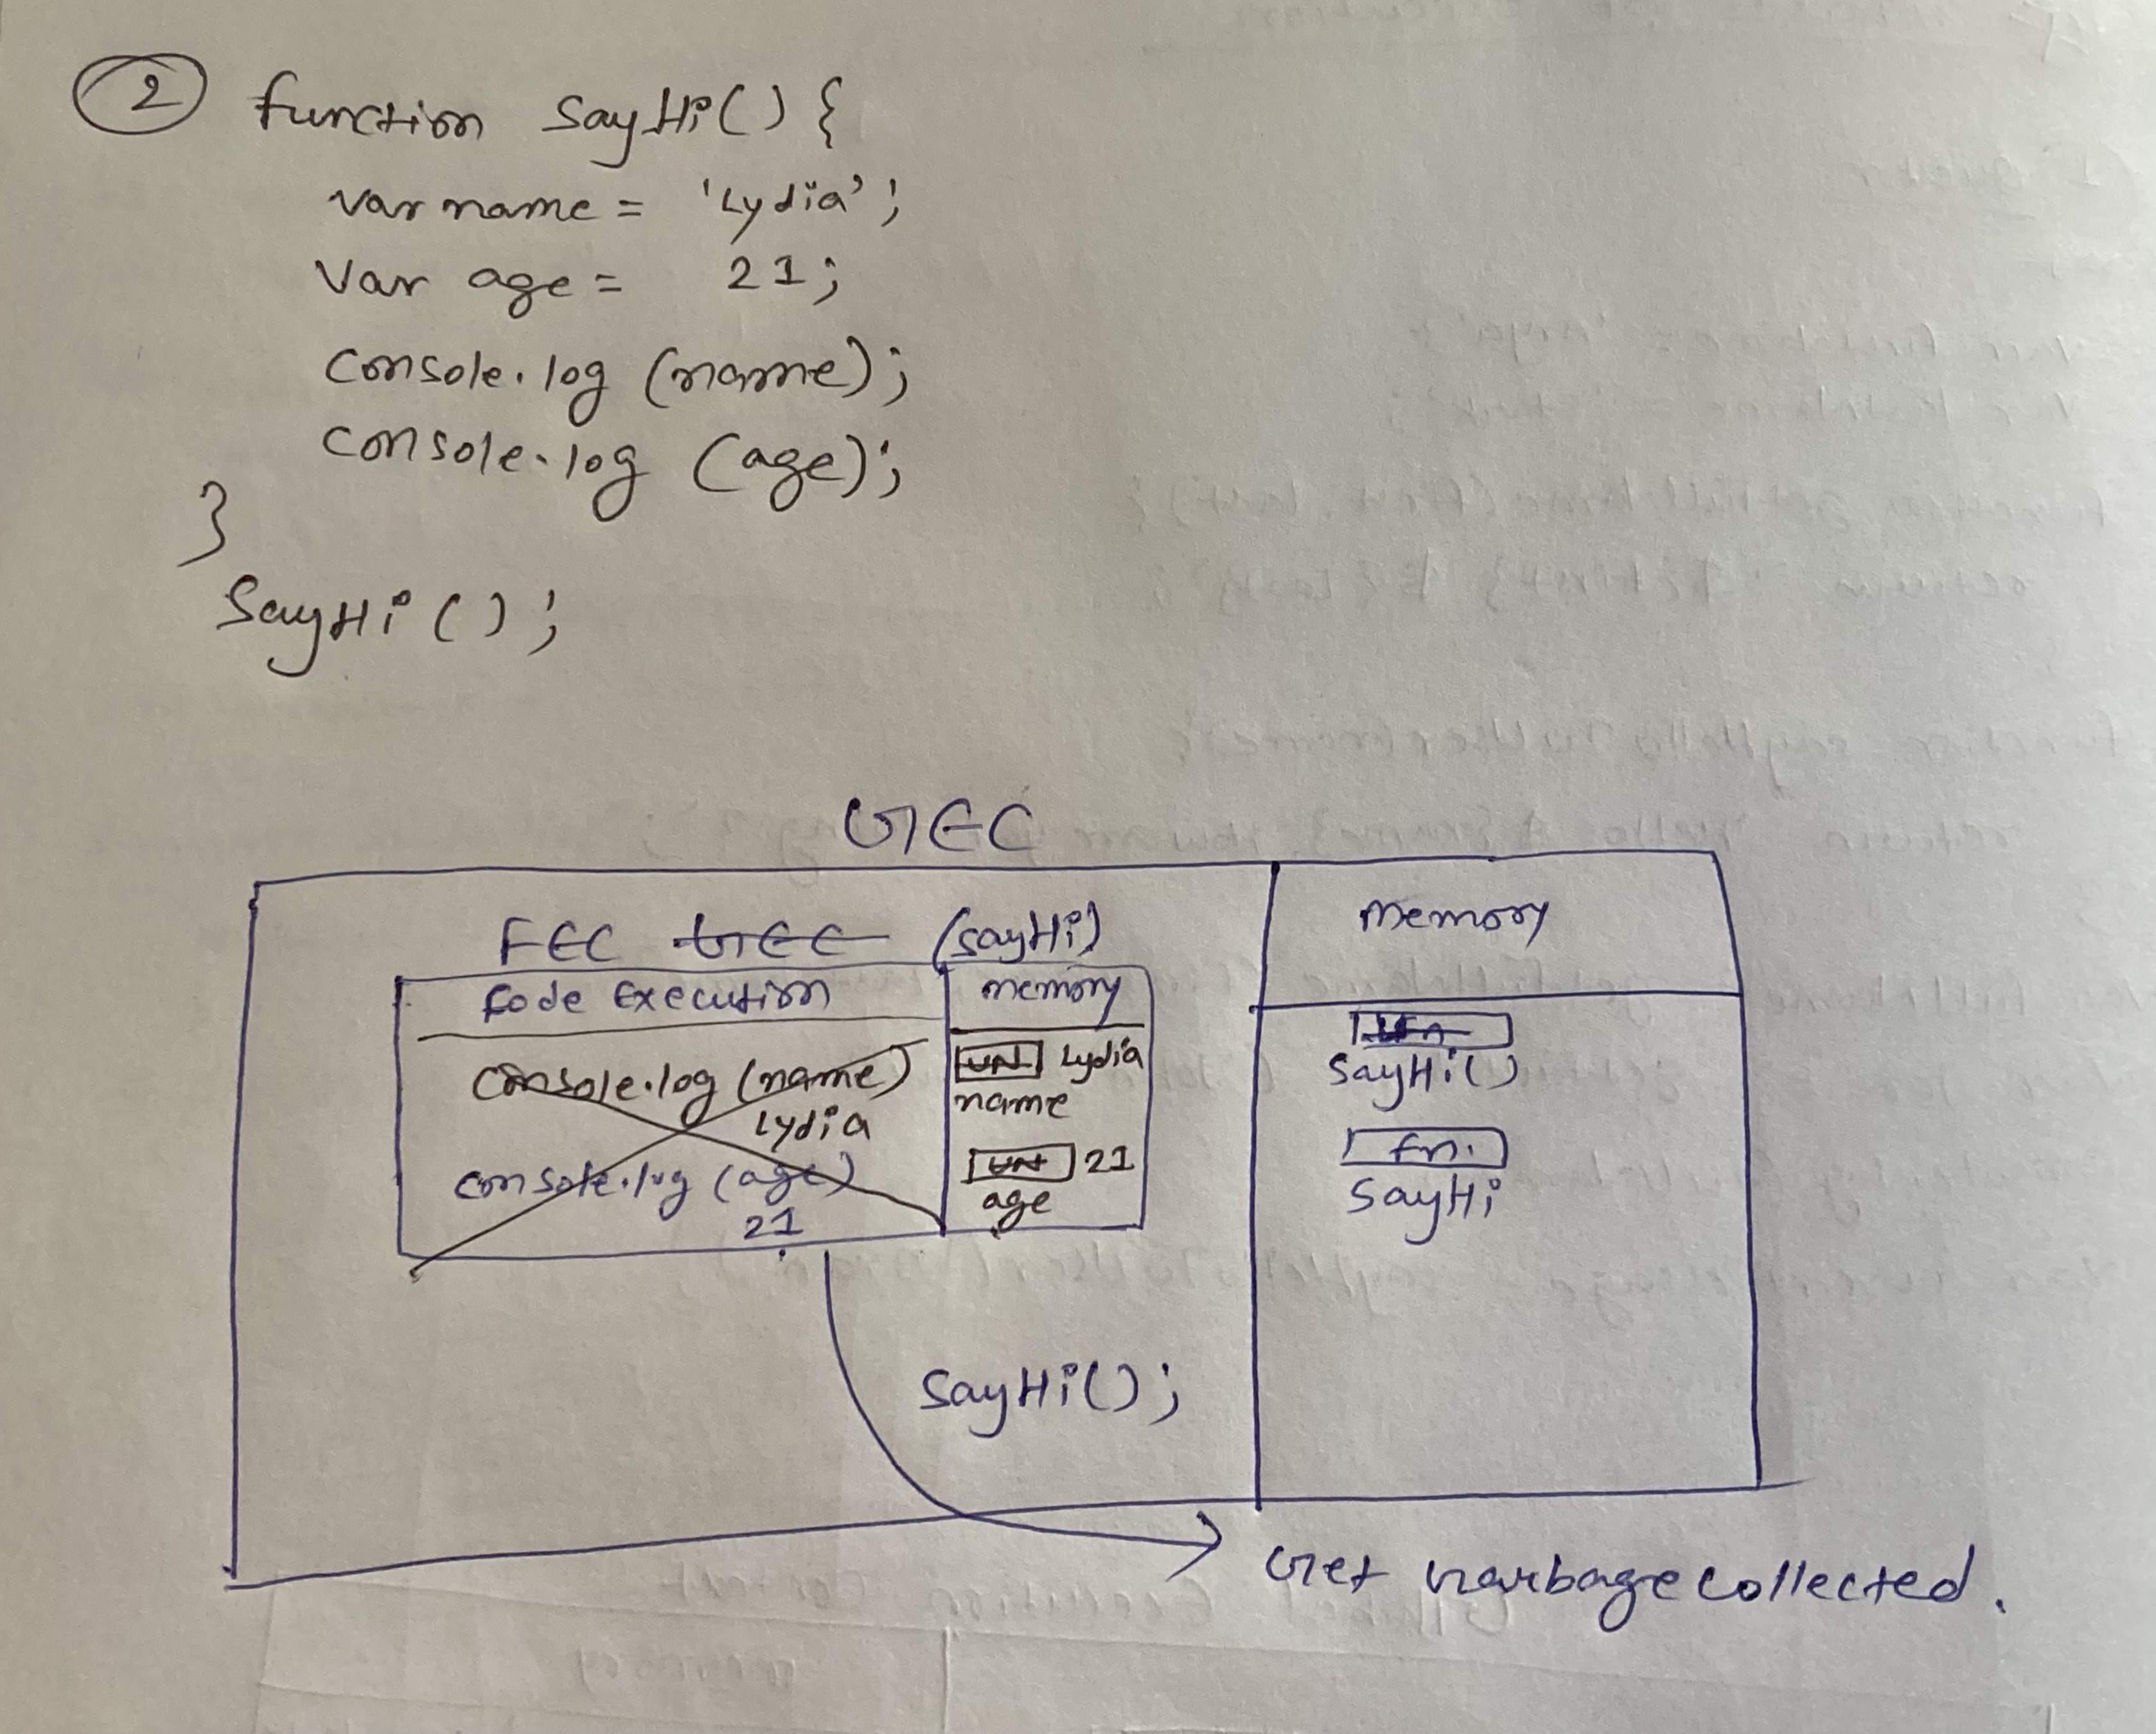 2 function SayHi() {
var name = 'Lydia';
Var age = 21;
Console.log (name);
Console.log (age);
}
SayHi();
GEC
FEC GEC (SayHi)
Code Execution
memory
console.log (name)
Lydia
console.log (age)
21
UN Lydia
name
UN 21
age
SayHi();
memory
SayHi()
fn.
SayHi
Get Garbage collected.